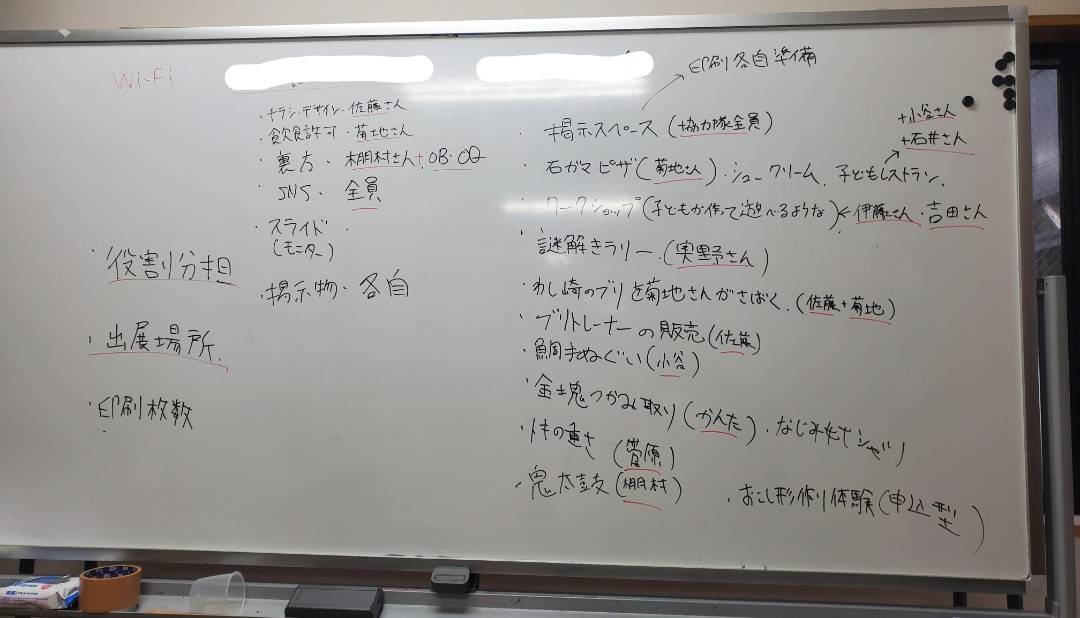 Wi-Fi
・チラシ・デザイン・佐藤さん
・飲食許可・菊地さん
・裏方・棚村さん+OB・OG
・SNS・全員
・スライド・
(モニター)
・掲示物・各自
・役割分担
・出展場所
・印刷枚数
印刷各自準備
・掲示スペース(協力隊全員)
+小谷さん
+石井さん
・石ガマピザ(菊地さん)・シュークリーム、子どもレストラン、
・ワークショップ(子どもが作って遊べるような)←伊藤さん・吉田さん
・謎解きラリー・(実野さん)
・わし崎のブリを菊地さんがさばく、(佐藤+菊地)
・ブリトレーナーの販売(佐藤)
・鯛手ぬぐい(小谷)
・金塊つかみ取り(かんた)
・トキの重さ(菅原)
・鬼太鼓(棚村)
・おこし形作り体験(申込型)